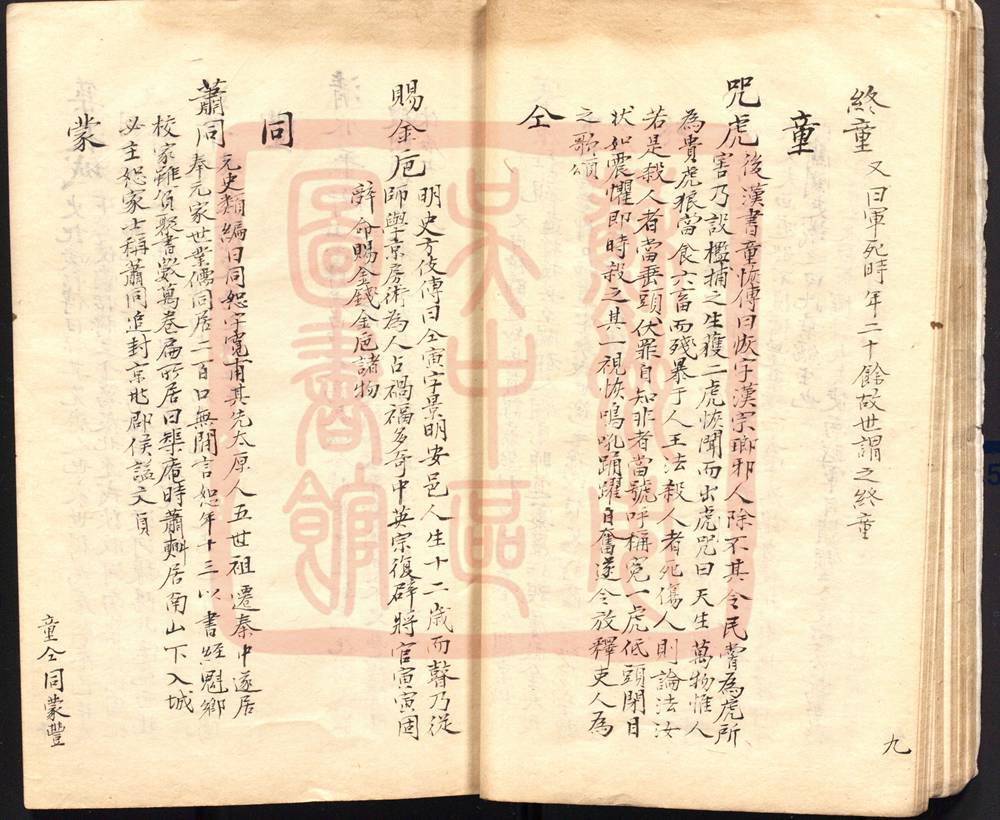 終童 又曰軍死時年二十餘故世謂之終童
童
咒虎 後漢書童恢傳曰恢字漢宗瑯邪人除不其令民嘗為虎所
害乃設檻捕之生獲二虎恢聞而出虎咒曰天生萬物惟人
為貴虎狼當食六畜而殘暴于人王法殺人者死傷人則論法汝
若是殺人者當垂頭伏罪自知非者當號呼稱冤一虎低頭閉目
狀如震懼即時殺之其一視恢鳴吼踊躍自奮遂令放釋吏人為
之歌頌
仝
賜金卮 明史方伎傳曰仝寅字景明安邑人生十二歲而瞽乃從
師學京房術為人占禍福多奇中英宗復辟將官寅寅固
辭命賜金錢金卮諸物
同
蕭同 元史類編曰同恕字寬甫其先太原人五世祖遷秦中遂居
奉元家世業儒同居二百口無間言恕年十三以書經魁鄉
校家雖貧聚書數萬卷扁所居曰榘庵時蕭𣂏居南山下入城
必主恕家士稱蕭同追封京兆郡侯諡文貞
蒙
童仝同蒙豐
九
蘇州
吳中區
圖書館